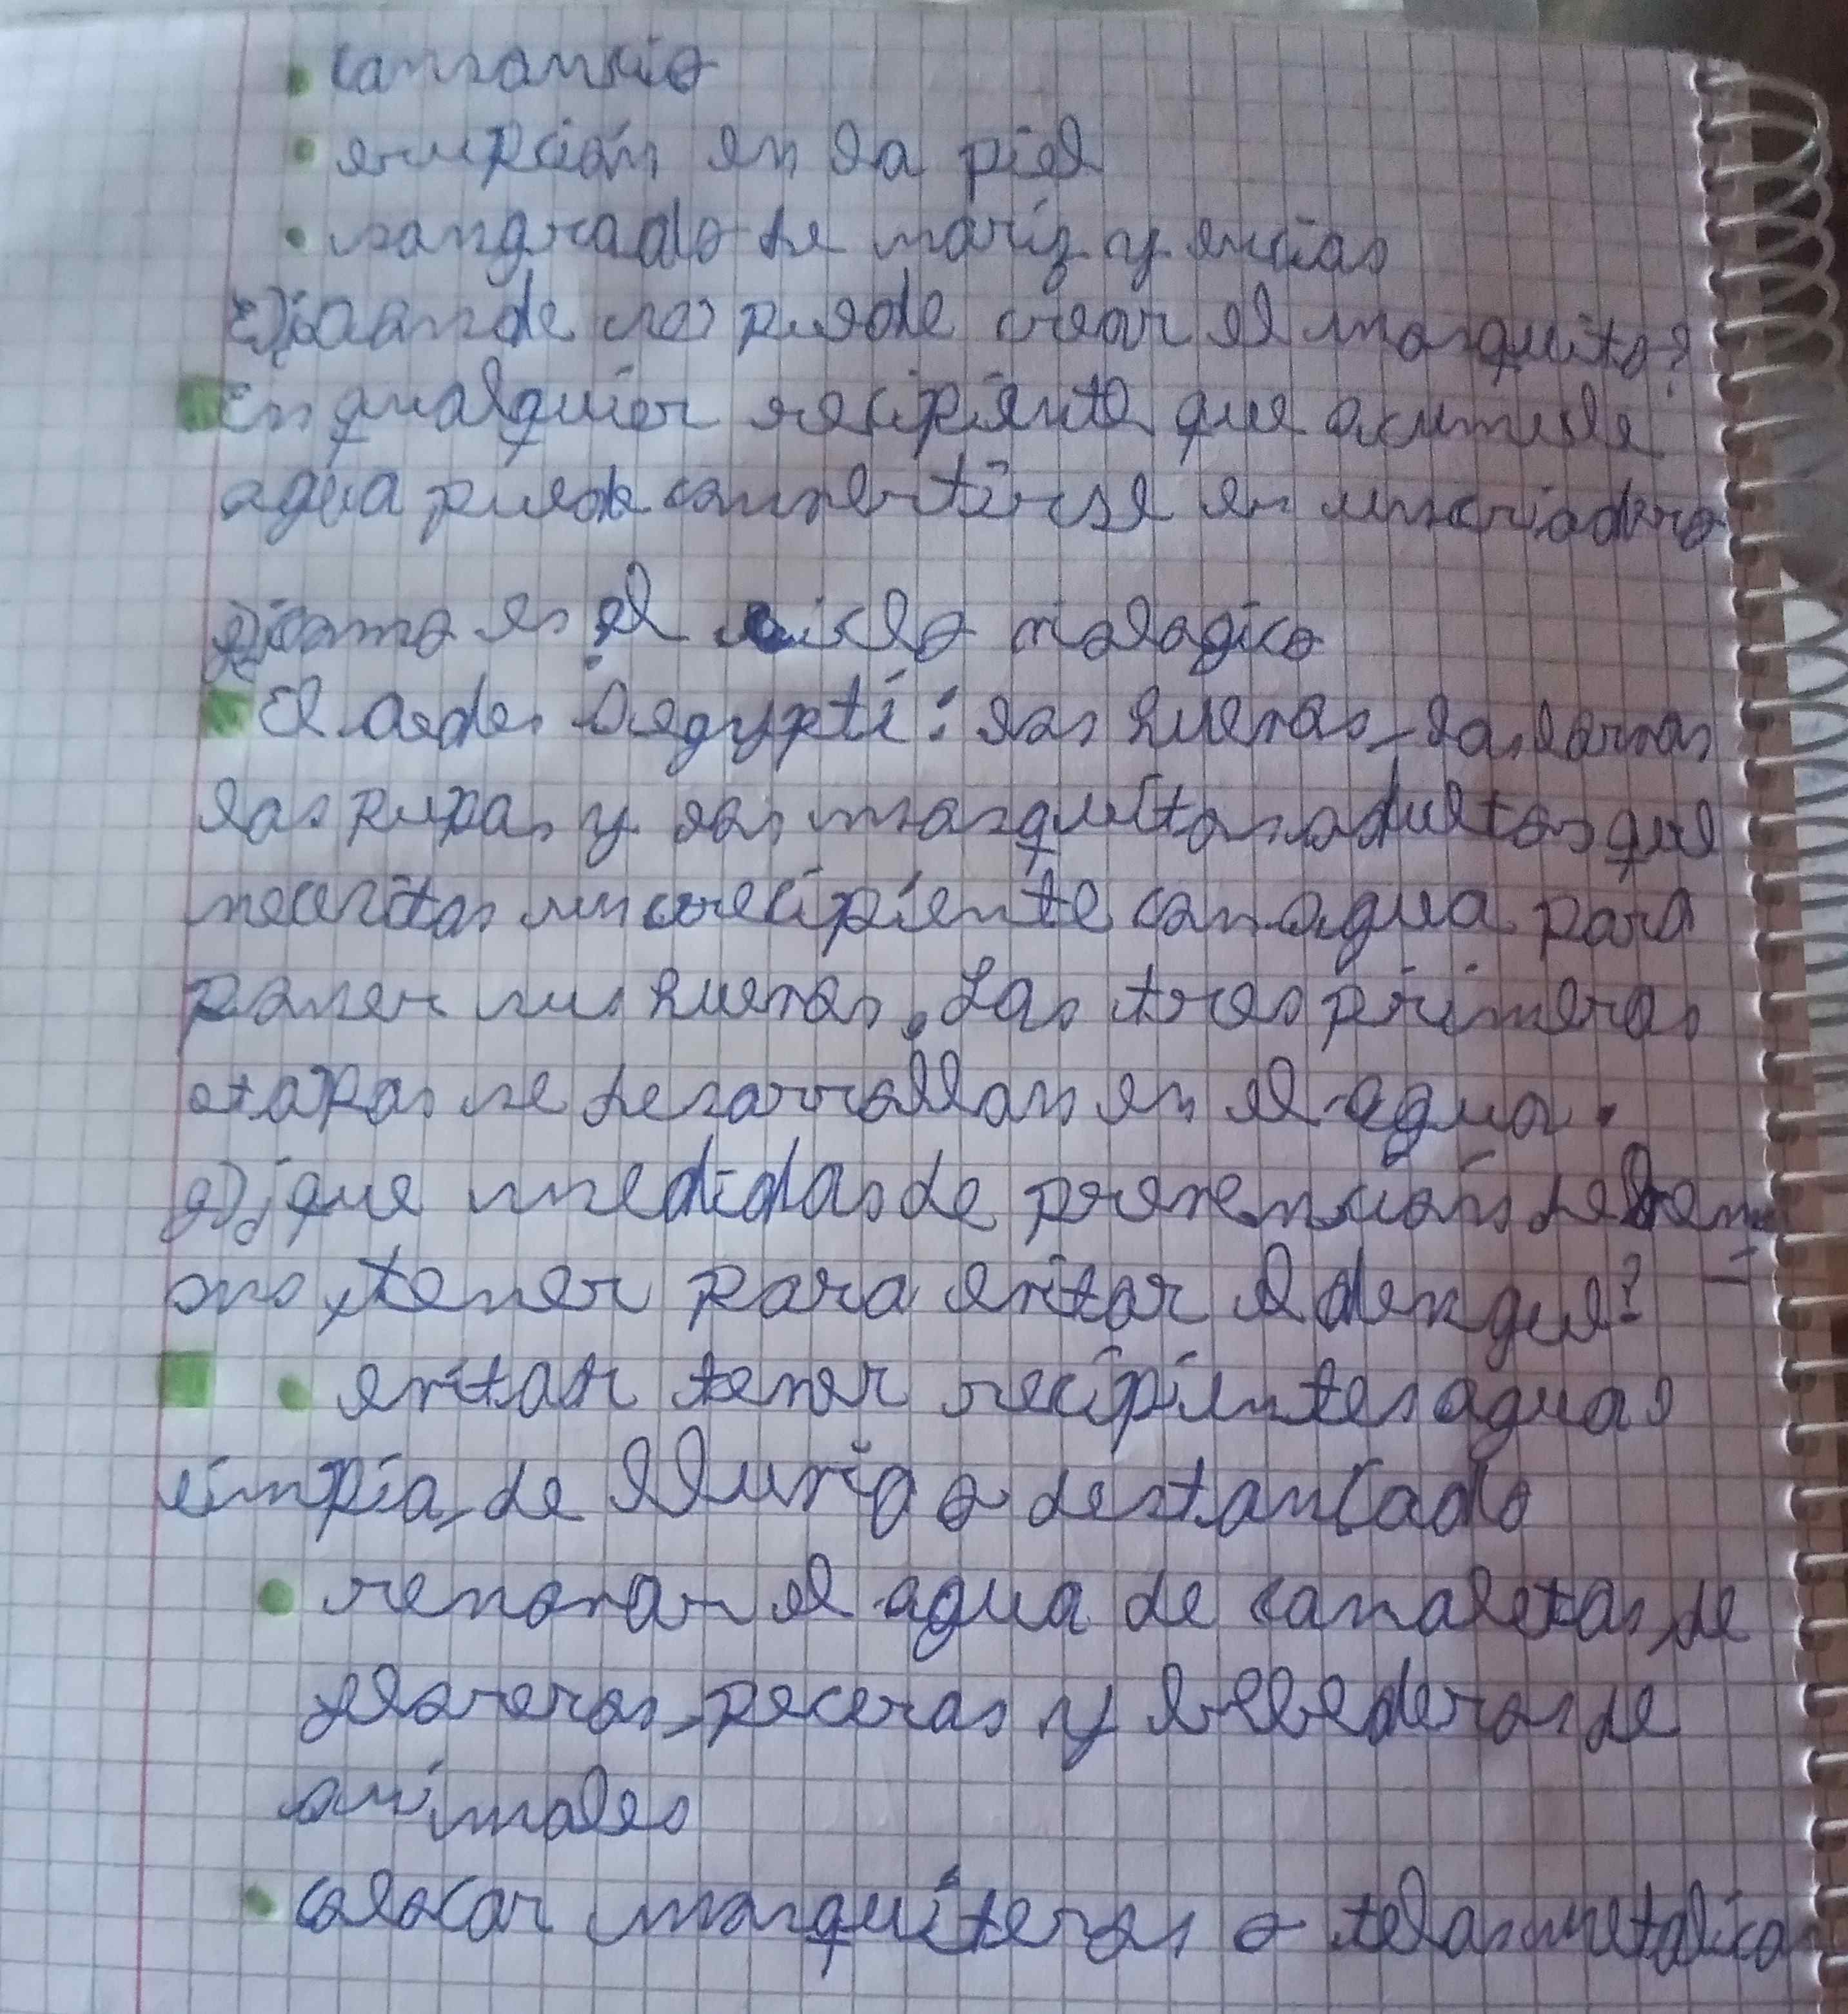 • cansancio
• erupción en la piel
• sangrado de naríz y encias
E)¿donde se puede crear el mosquito?
En qualquier recipiente que acumule
agua puede convertirse en un criadero
F)¿como es el ciclo viologico
El Aedes Aegypti: las huevas, las larvas
las pupas y los mosquitos adultos que
necesitas un recipiente con agua para
poner sus huevos. Las tres primeras
etapas se desarrollan en el agua.
g)¿que medidas de prevención debem
os tener para evitar el dengue?
• evitar tener recipientes aguas
limpia, de lluvia o destancado
• renovar el agua de canaletas, de
floreros, peceras y bebederos de
animales
• colocar mosquiteros o telas metalicas